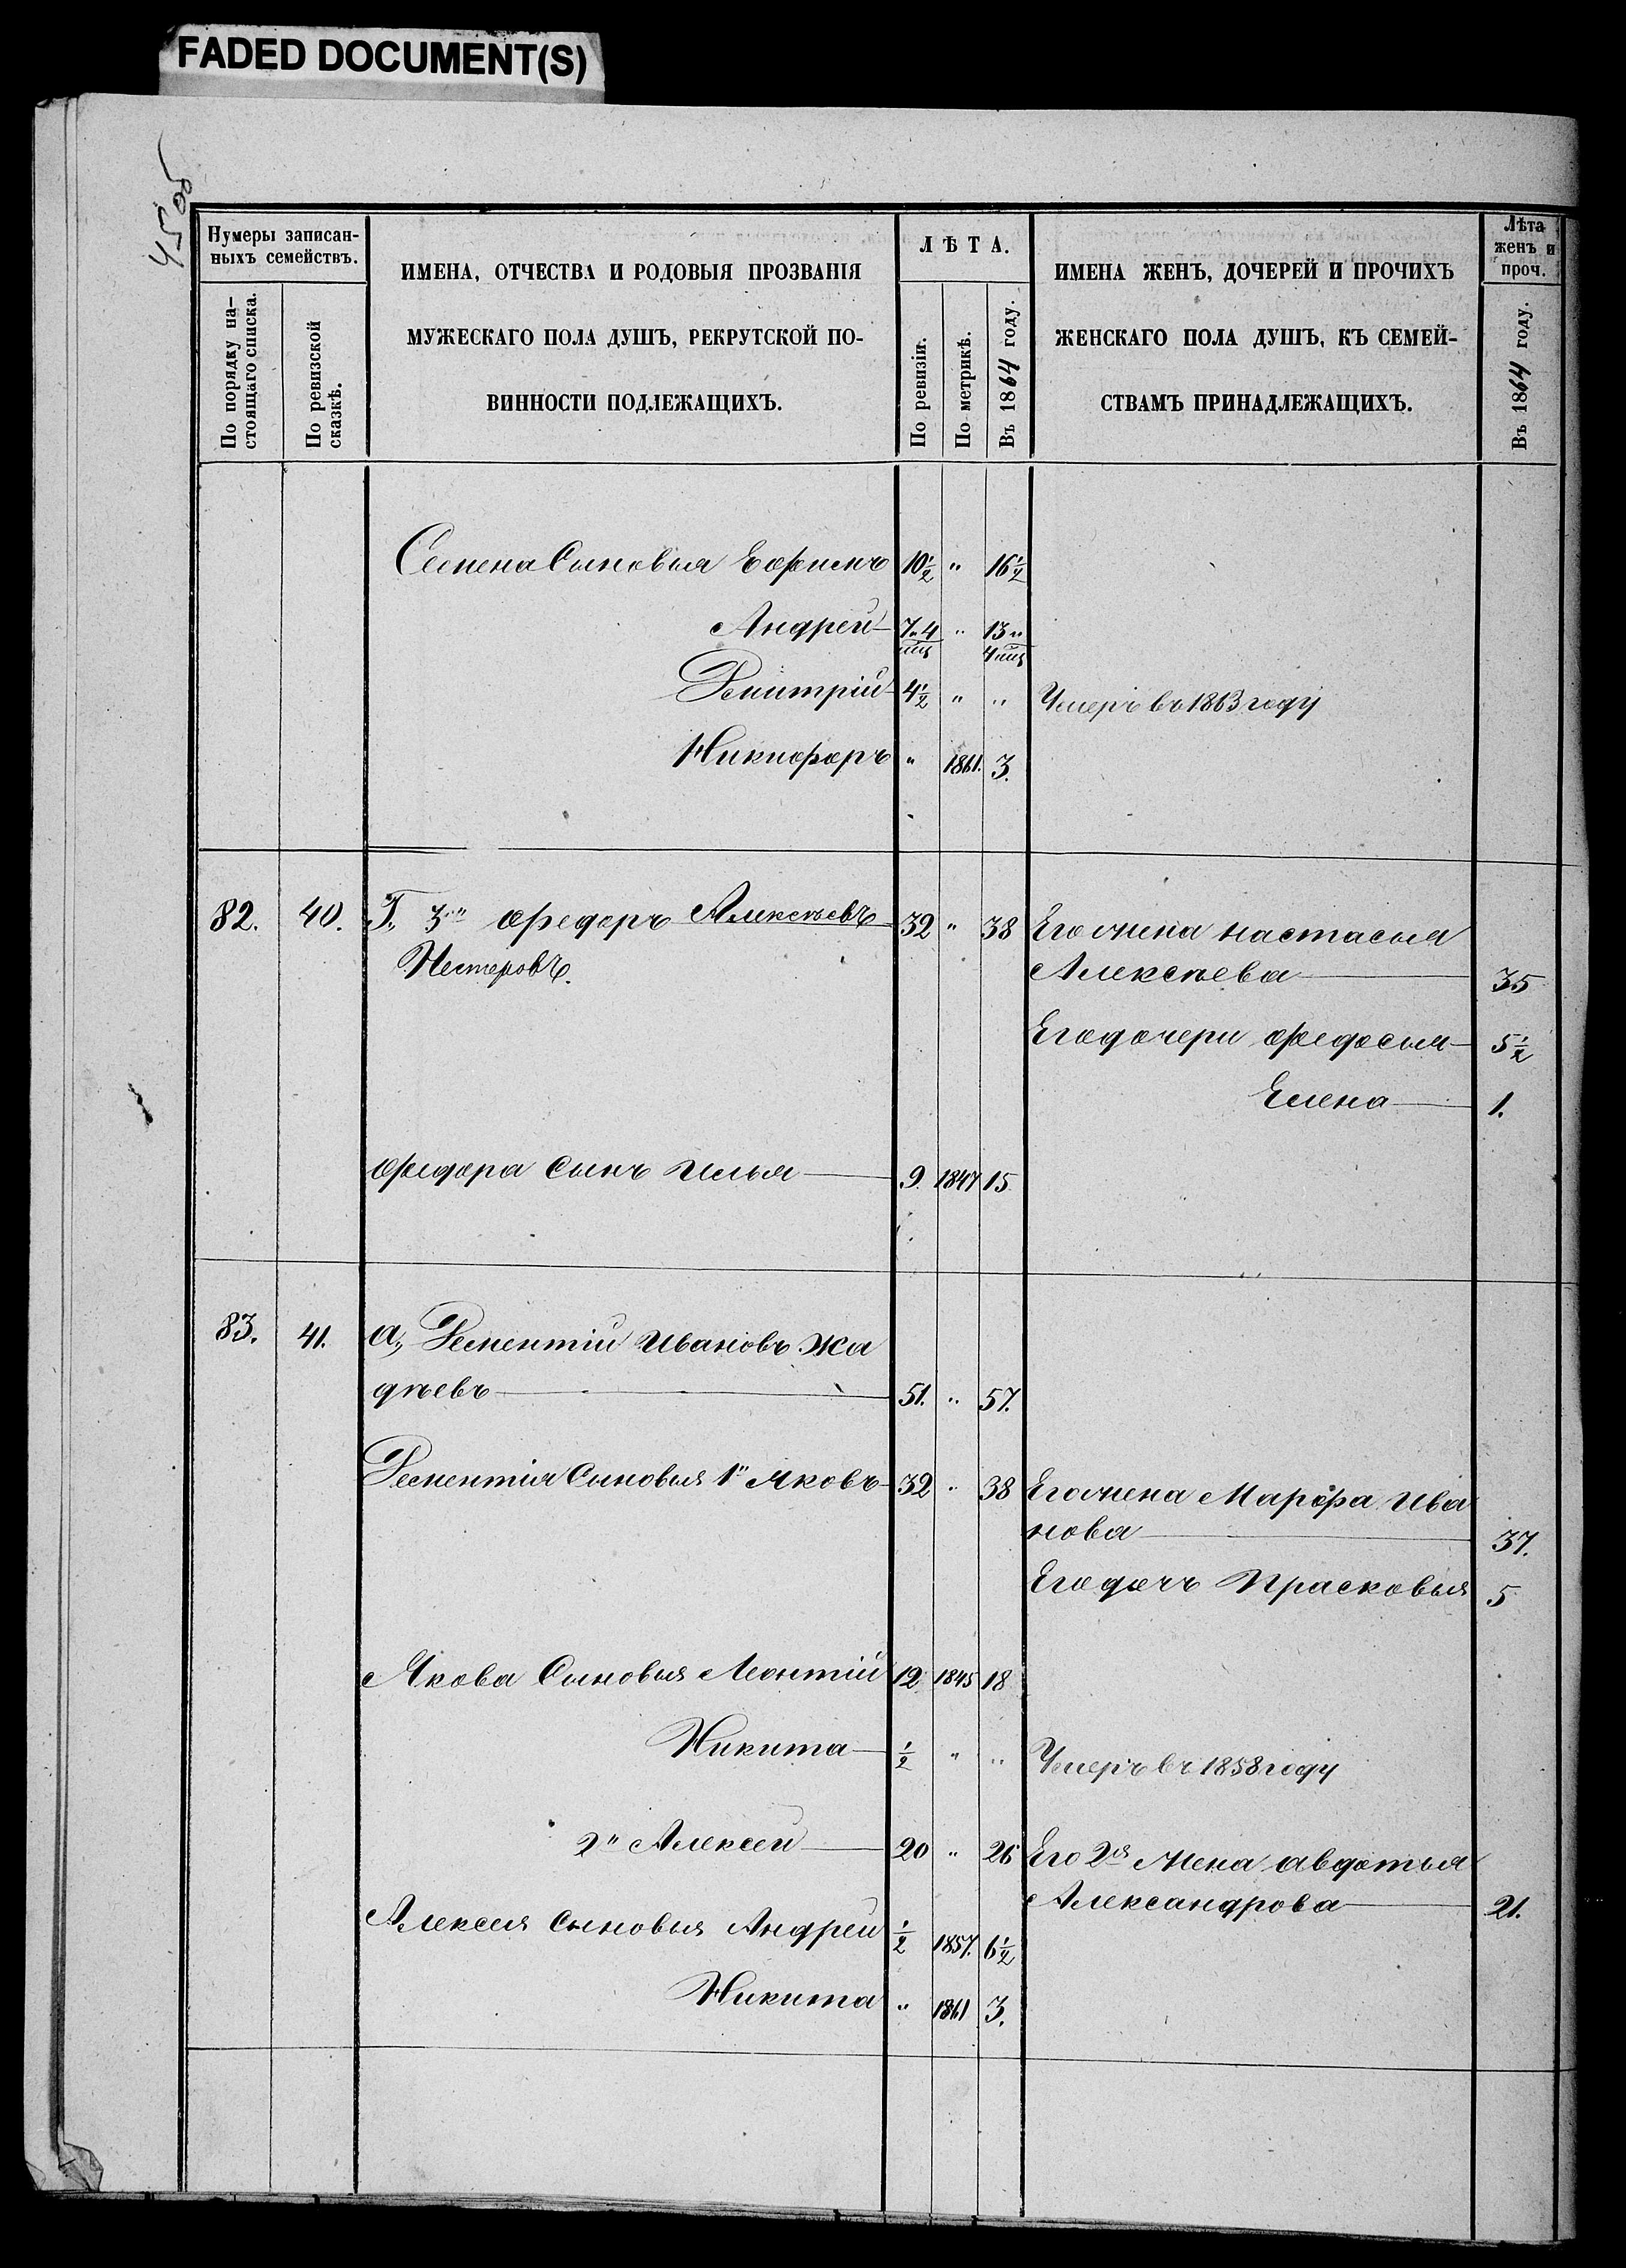 FADED DOCUMENT(S)
45об
Нумеры записан-
ныхъ семействъ.
По порядку на-
стоящаго списка.
По ревизской
сказкѣ.
ИМЕНА, ОТЧЕСТВА И РОДОВЫЯ ПРОЗВАНІЯ
МУЖЕСКАГО ПОЛА ДУШЪ, РЕКРУТСКОЙ ПО-
ВИННОСТИ ПОДЛЕЖАЩИХЪ.
ЛѢТА.
По ревизіи.
По метрикѣ.
Въ 1864 году.
ИМЕНА ЖЕНЪ, ДОЧЕРЕЙ И ПРОЧИХЪ
ЖЕНСКАГО ПОЛА ДУШЪ, КЪ СЕМЕЙ-
СТВАМЪ ПРИНАДЛЕЖАЩИХЪ.
Лѣта
женъ и
проч.
Въ 1864 году.
Семена Сыновья Ефимъ 10½ " 16½
Андрей 7 " 4 мц " 13 " 4 мц
Дмитрій 4½ " " Умеръ въ 1863 году
Никифоръ " 1861. 3.
82. 40. Г. 3й Федоръ Алексѣевъ 32 " 38 Его жена Настасья
Нестеровъ.
Алексѣева 35
Его дочери Федосья 5½
Елена 1.
Федора Сынъ Илья 9. 1847 15
83. 41. а, Дементій Ивановъ Жа
дѣевъ 51. " 57.
Дементія Сыновья 1й Яковъ 32 " 38 Его жена Марфа Ива
нова 37.
Его дочь Прасковья 5
Якова Сыновья Леонтій 12 1845 18
Никита ½ " " Умеръ въ 1858 году
2й Алексей 20 " 26 Его 2я Жена Авдотья
Александрова 21.
Алексея Сыновья Андрей ½ 1857. 6½
Никита " 1861 3.